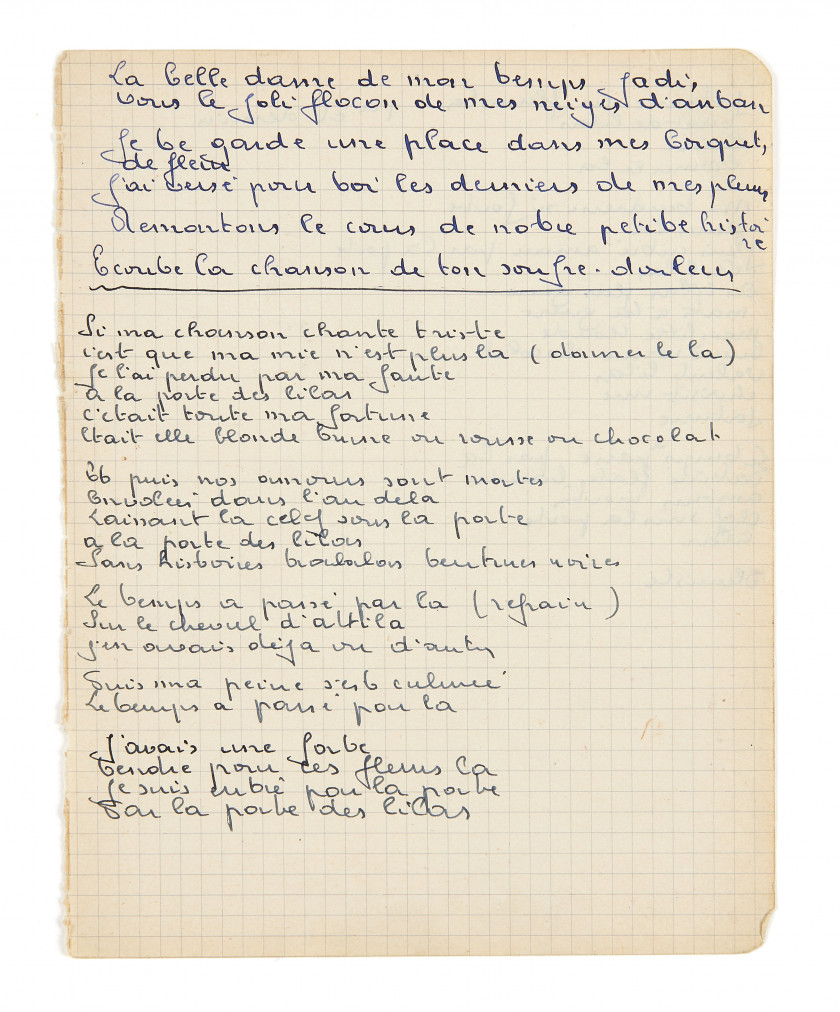 La belle dame de mon temps jadis,
vous le joli flocon de mes neiges d'antan
Je te garde une place dans mes bosquets,
de fleur
J'ai versé pour toi les derniers de mes pleurs
Remontons le cours de notre petite histoi
re
Ecoute la chanson de ton soufre-douleur
Si ma chanson chante triste
c'est que ma mie n'est plus la (donner le la)
Je l'ai perdu par ma faute
a la porte des lilas
c'était toute ma fortune
Etait elle blonde brune ou rousse ou chocolat
Et puis nos amours sont mortes
Envolées dans l'au dela
Laissant la clef sous la porte
a la porte des lilas
Sans histoires tralalas tentures noires
Le temps a passé par la (refrain)
Sur le cheval d'attila
j'en avais déja vu d'autres
Puis ma peine s'est calmée
Le temps a passé par la
J'avais une
tendre pour ces fleurs la
Je suis entré par la porte
Par la porte des lilas